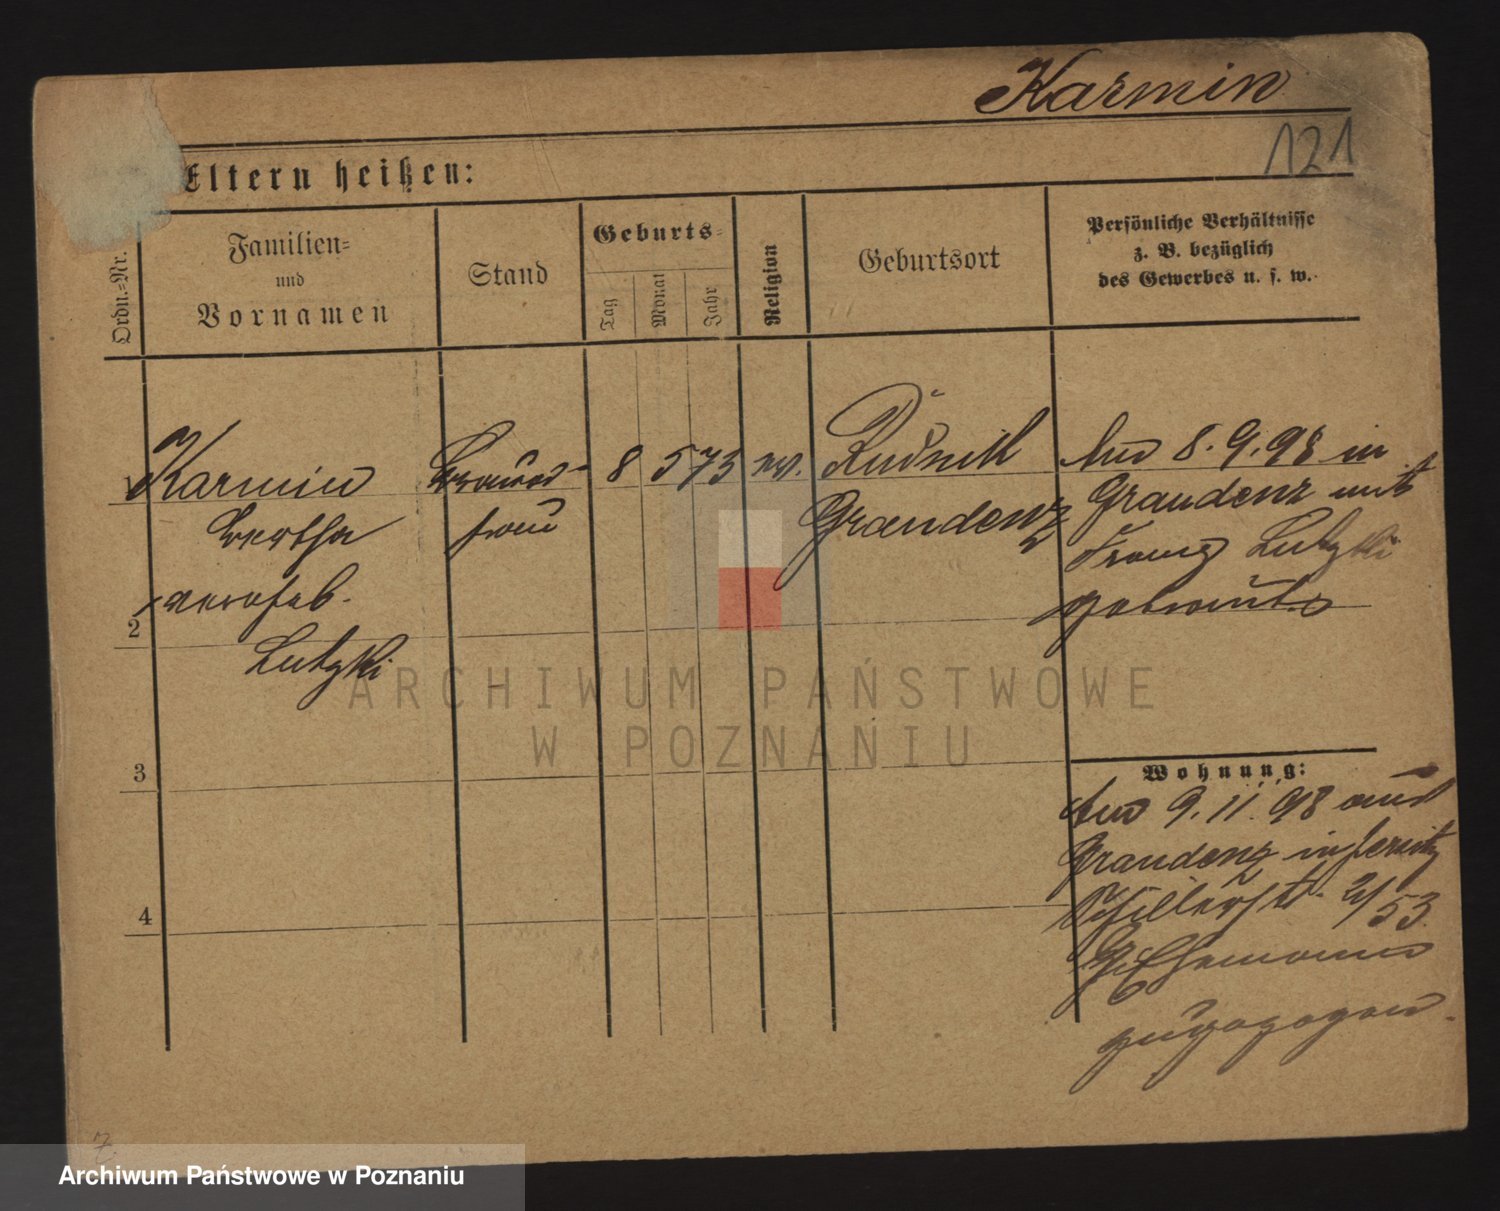 Karmin
121
Eltern heißen:
Ordn.=Nr.
Familien=
und
Vornamen
Stand
Geburts=
Tag
Monat
Jahr
Religion
Geburtsort
Persönliche Verhältnisse
z. B. bezüglich
des Gewerbes u. s. w.
1
Karmin
Bertha
verehel.
Lutzki
frau
8 5 73 ev.
Rudnik
Graudenz
Am 8.9.98 in
Graudenz mit
Franz Lutzki
getraut.
2
3
4
Wohnung:
Am 9.11.98 aus
Graudenz in Jersitz
Schillerstr. 2/53
Ehemann
zugezogen.
ARCHIWUM PAŃSTWOWE
W POZNANIU
Archiwum Państwowe w Poznaniu